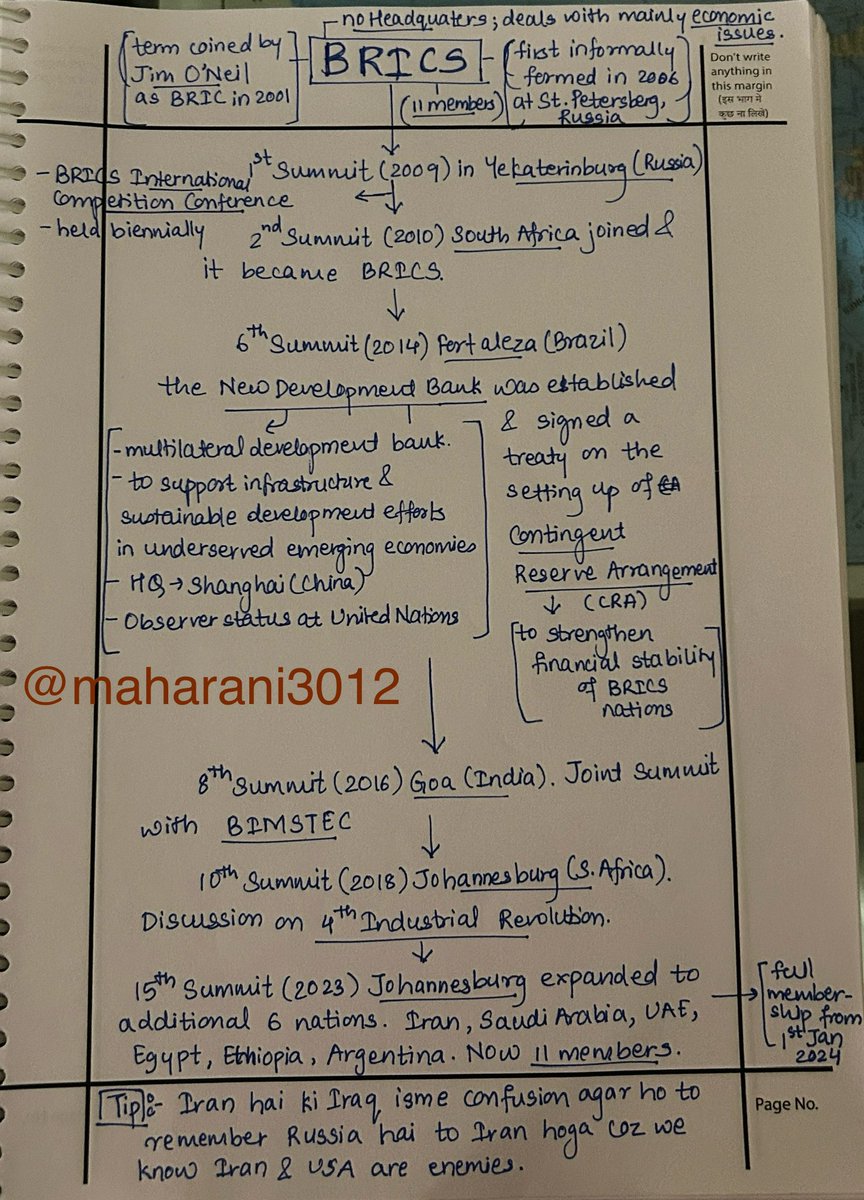 no Headquaters; deals with mainly economic
issues.
term coined by
Jim O'Neil
as BRIC in 2001
BRICS
(11 members)
first informally
formed in 2006
at St. Petersberg,
Russia
Don't write
anything in
this margin
(इस भाग में
कुछ ना लिखें)
1st Summit (2009) in Yekaterinburg (Russia)
- BRICS International
Competition Conference
- held biennially
2nd Summit (2010) South Africa joined &
it became BRICS.
6th Summit (2014) Fortaleza (Brazil)
the New Development Bank was established
- multilateral development bank.
- to support infrastructure &
sustainable development efforts
in underserved emerging economies
- HQ → Shanghai (China)
- Observer status at United Nations
& signed a
treaty on the
setting up of
Contingent
Reserve Arrangement
(CRA)
to strengthen
financial stability
of BRICS
nations
@maharani3012
8th Summit (2016) Goa (India). Joint Summit
with BIMSTEC
10th Summit (2018) Johannesburg (S. Africa).
Discussion on 4th Industrial Revolution.
15th Summit (2023) Johannesburg expanded to
additional 6 nations. Iran, Saudi Arabia, UAE,
Egypt, Ethiopia, Argentina. Now 11 members.
full
member-
ship from
1st Jan
2024
Tip:- Iran hai ki Iraq isme confusion agar ho to
remember Russia hai to Iran hoga coz we
know Iran & USA are enemies.
Page No.